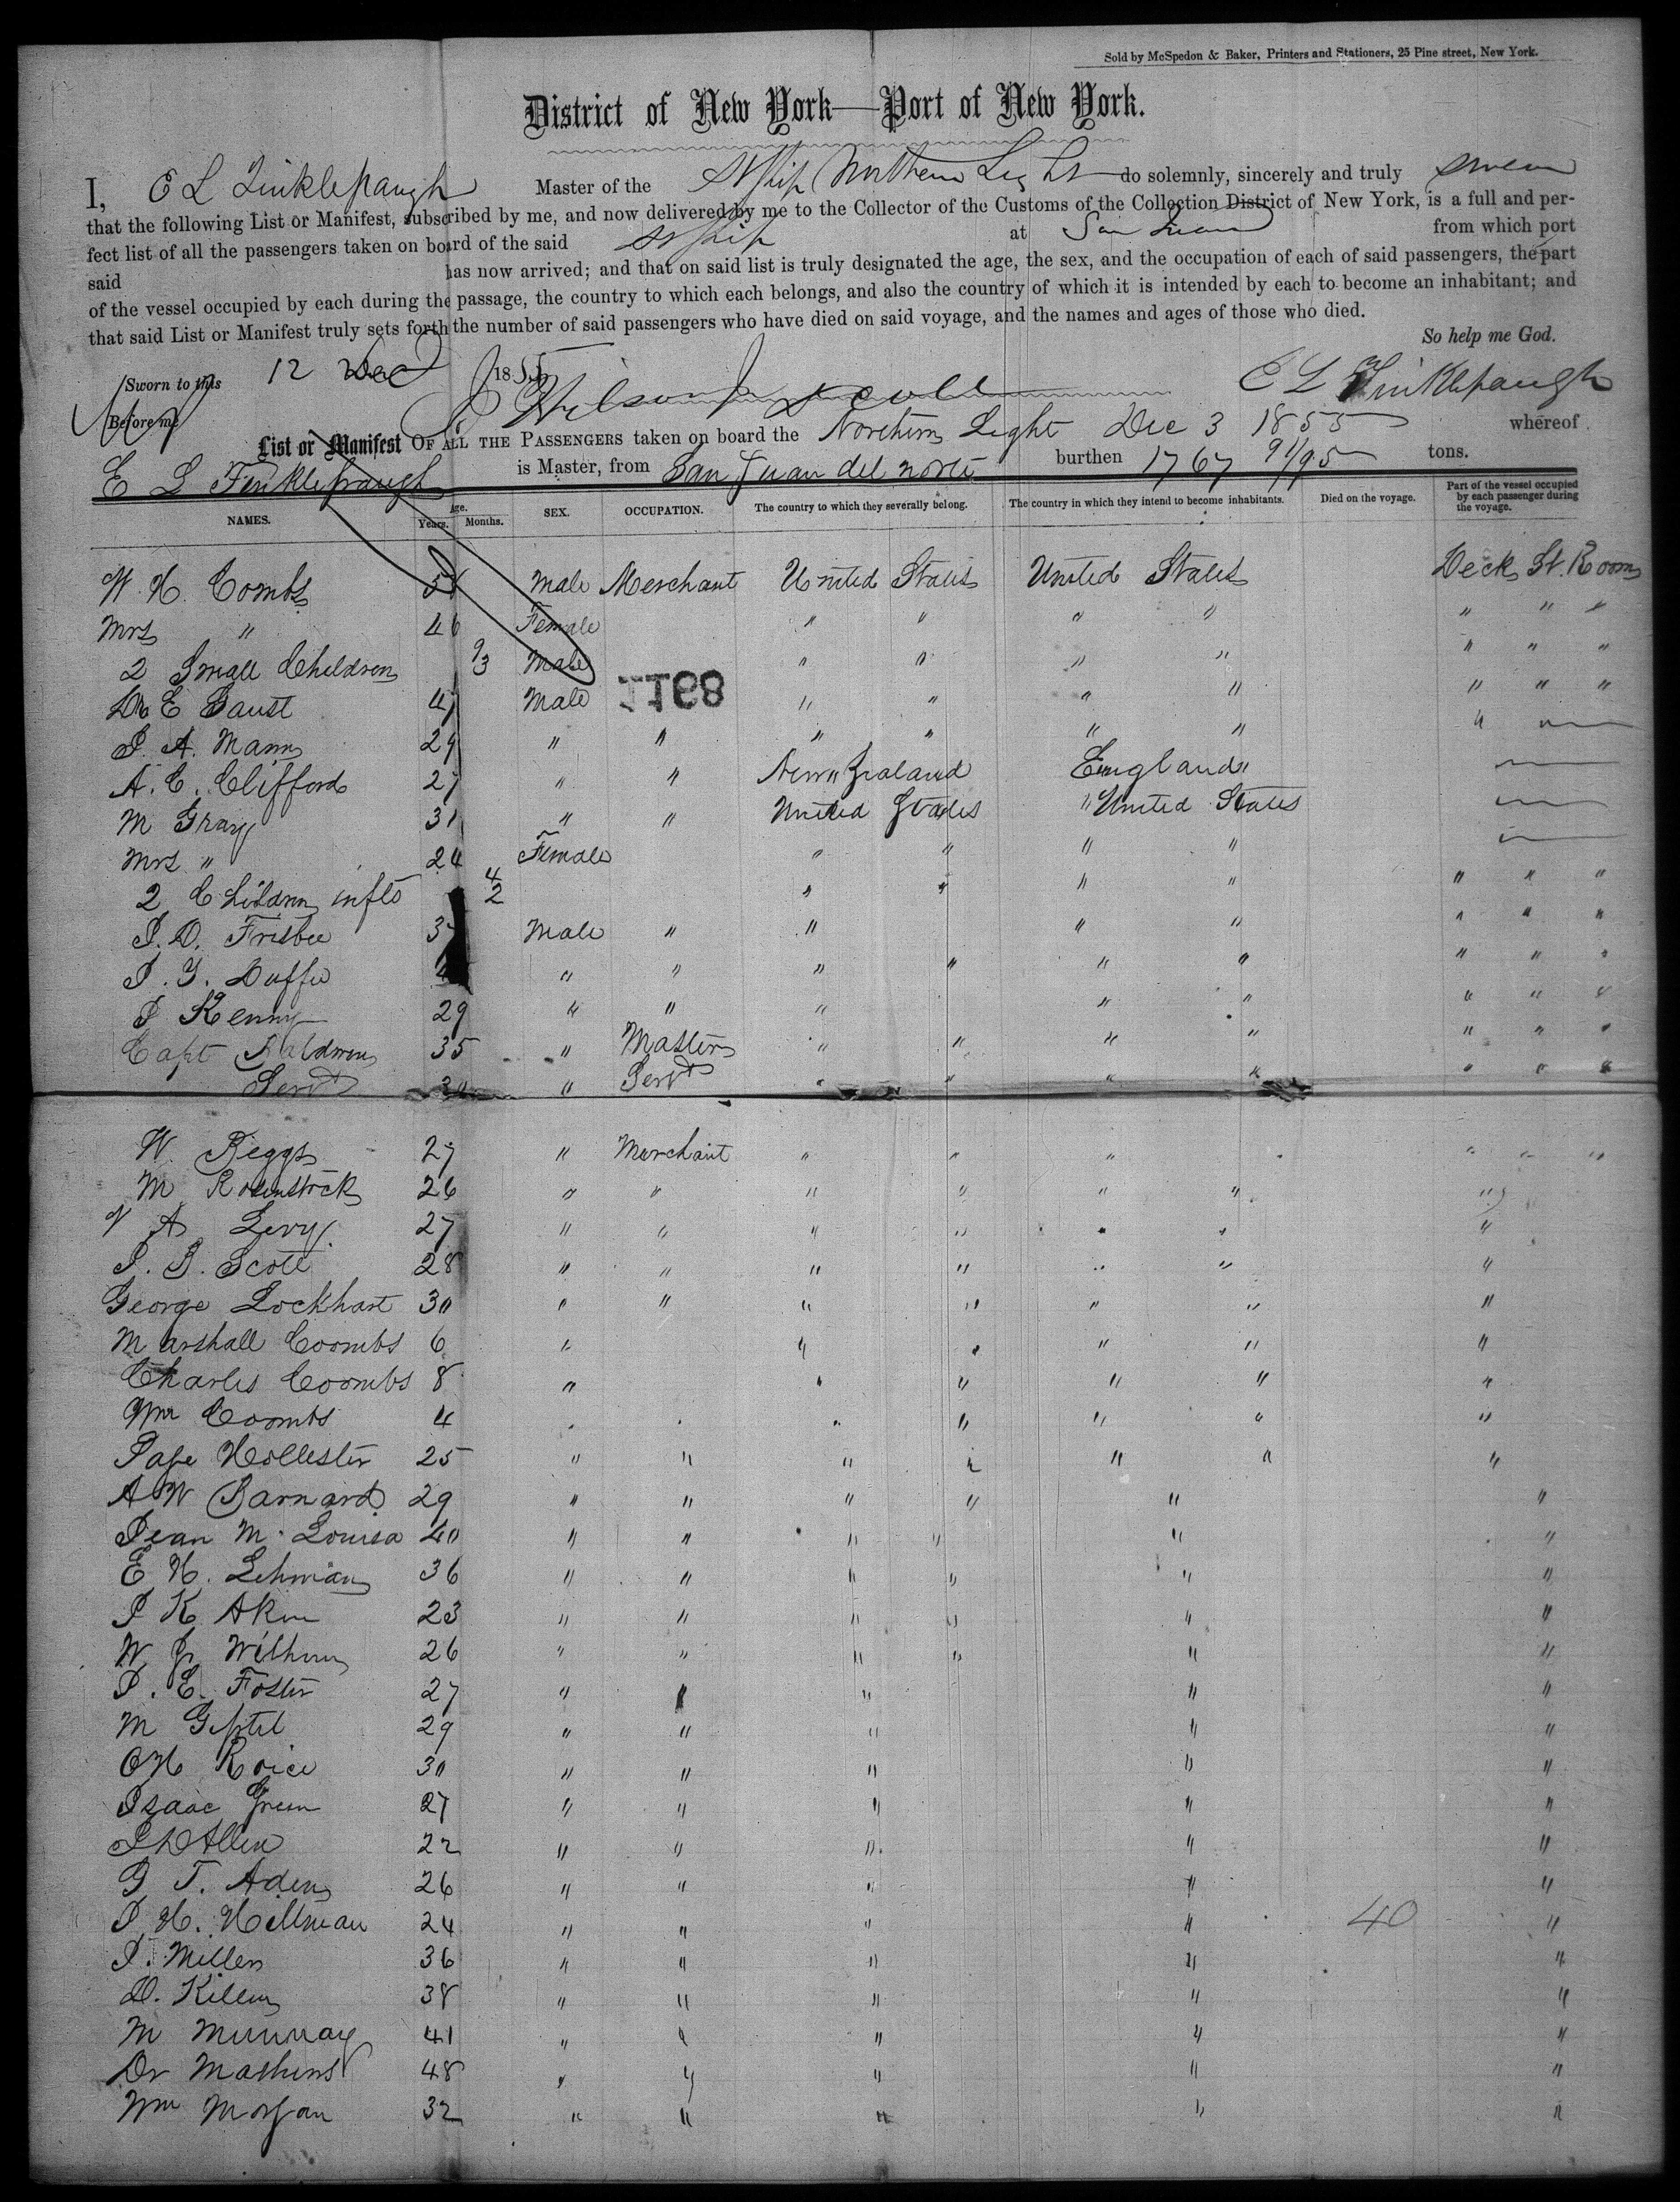 Sold by McSpedon & Baker, Printers and Stationers, 25 Pine street, New York.
District of New York—Port of New York.
I, E L Tinklepaugh Master of the St Ship Northern Light do solemnly, sincerely and truly swear
that the following List or Manifest, subscribed by me, and now delivered by me to the Collector of the Customs of the Collection District of New York, is a full and per-
fect list of all the passengers taken on board of the said St Ship at San Juan from which port
said has now arrived; and that on said list is truly designated the age, the sex, and the occupation of each of said passengers, the part
of the vessel occupied by each during the passage, the country to which each belongs, and also the country of which it is intended by each to become an inhabitant; and
that said List or Manifest truly sets forth the number of said passengers who have died on said voyage, and the names and ages of those who died.
So help me God.
Sworn to this 12 Dec 1855 E L Tinklepaugh
Before me
List or Manifest OF ALL THE PASSENGERS taken on board the Northern Light Dec 3 1855 whereof
E L Tinklepaugh is Master, from San Juan del norte burthen 1767 91/95 tons.
NAMES. Age. Years. Months. SEX. OCCUPATION. The country to which they severally belong. The country in which they intend to become inhabitants. Died on the voyage. Part of the vessel occupied by each passenger during the voyage.
W. H. Combs Male Merchant United States United States Deck St. Room
Mrs " 46 Female " " " " " " "
2 Small Children 9 3 Male " " " " " " "
E Gaust 47 Male 1168 " " " " " " "
J. A. Mann 29 " " " " " " "
A. C. Clifford 27 " " New Zealand England
M Gray 31 " " United States United States
Mrs " 24 Female " " " "
2 Children infts 4 2 " " " " " " "
J. D. Frisbee Male " " " " " " "
J. G. Duffie " " " " " " " " "
J Kenny 29 " " " " " " " "
Capt Baldwin 35 " Master " " " " " " "
Servt 30 " Servt " " " " " " "
W. Beggs 27 " Merchant " " " " " "
M Rosenstock 26 " " " " " " "
A Levy 27 " " " " " " "
J. B. Scott 28 " " " " " " "
George Lockhart 30 " " " " " " "
Marshall Coombs 6 " " " " " "
Charles Coombs 8 " " " " " "
Wm Coombs 4 " " " " " "
Page Hollester 25 " " " " " " "
A W Barnard 29 " " " " " "
Jean M. Louisa 40 " " " " " "
E H. Lehman 36 " " " " " "
J K Akin 23 " " " " " "
W 26 " " " " " "
J. C. Foster 27 " " " " "
M 29 " " " " "
O H Roice 30 " " " " "
Isaac Green 27 " " " " "
Allen 22 " " " " "
G T. Aden 26 " " " " "
J H. Hillman 24 " " " " 40 "
J. Miller 36 " " " " "
D. Killem 38 " " " " "
M Murray 41 " " " " "
Dr Mathews 48 " " " " "
Wm Morgan 32 " " " " "